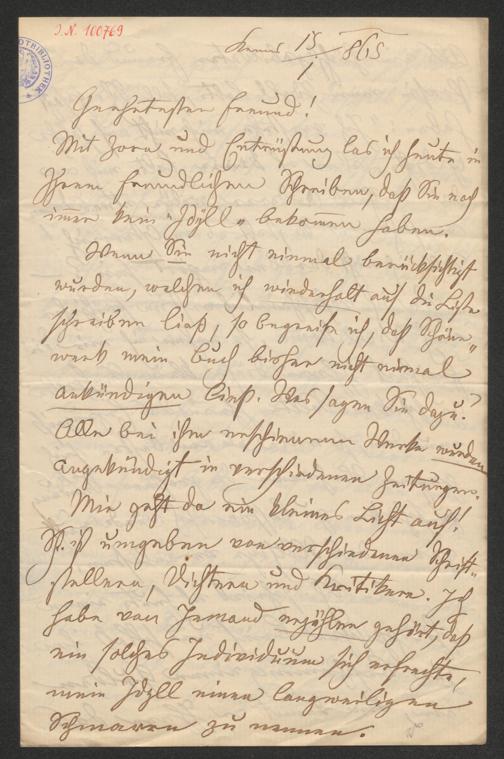 I.N. 100769
BIBLIOTHEK
15/1 865
Geehrtester Freund!
Mit Zorn und Entrüstung las ich heute in
Ihrem freundlichen Schreiben, daß Sie noch
immer kein „Idyll" bekommen haben.
Wenn Sie nicht einmal berücksichtigt
wurden, welchen ich wiederholt auf die Liste
schreiben ließ, so begreife ich, daß Schöne„
werk mein Buch bisher nicht einmal
ankündigen ließ. Was sagen Sie dazu?
Alle bei ihm erschienenen Werke wurden
angekündigt in verschiedenen Zeitungen.
Mir geht da ein kleines Licht auf!
ist umgeben von verschiedenen Schrift-
stellern, Dichtern und Kritikern. Ich
habe von Jemand erzählen gehört, daß
ein solches Individuum sich erfrechte,
mein Idyll einen langweiligen
Schmarrn zu nennen.